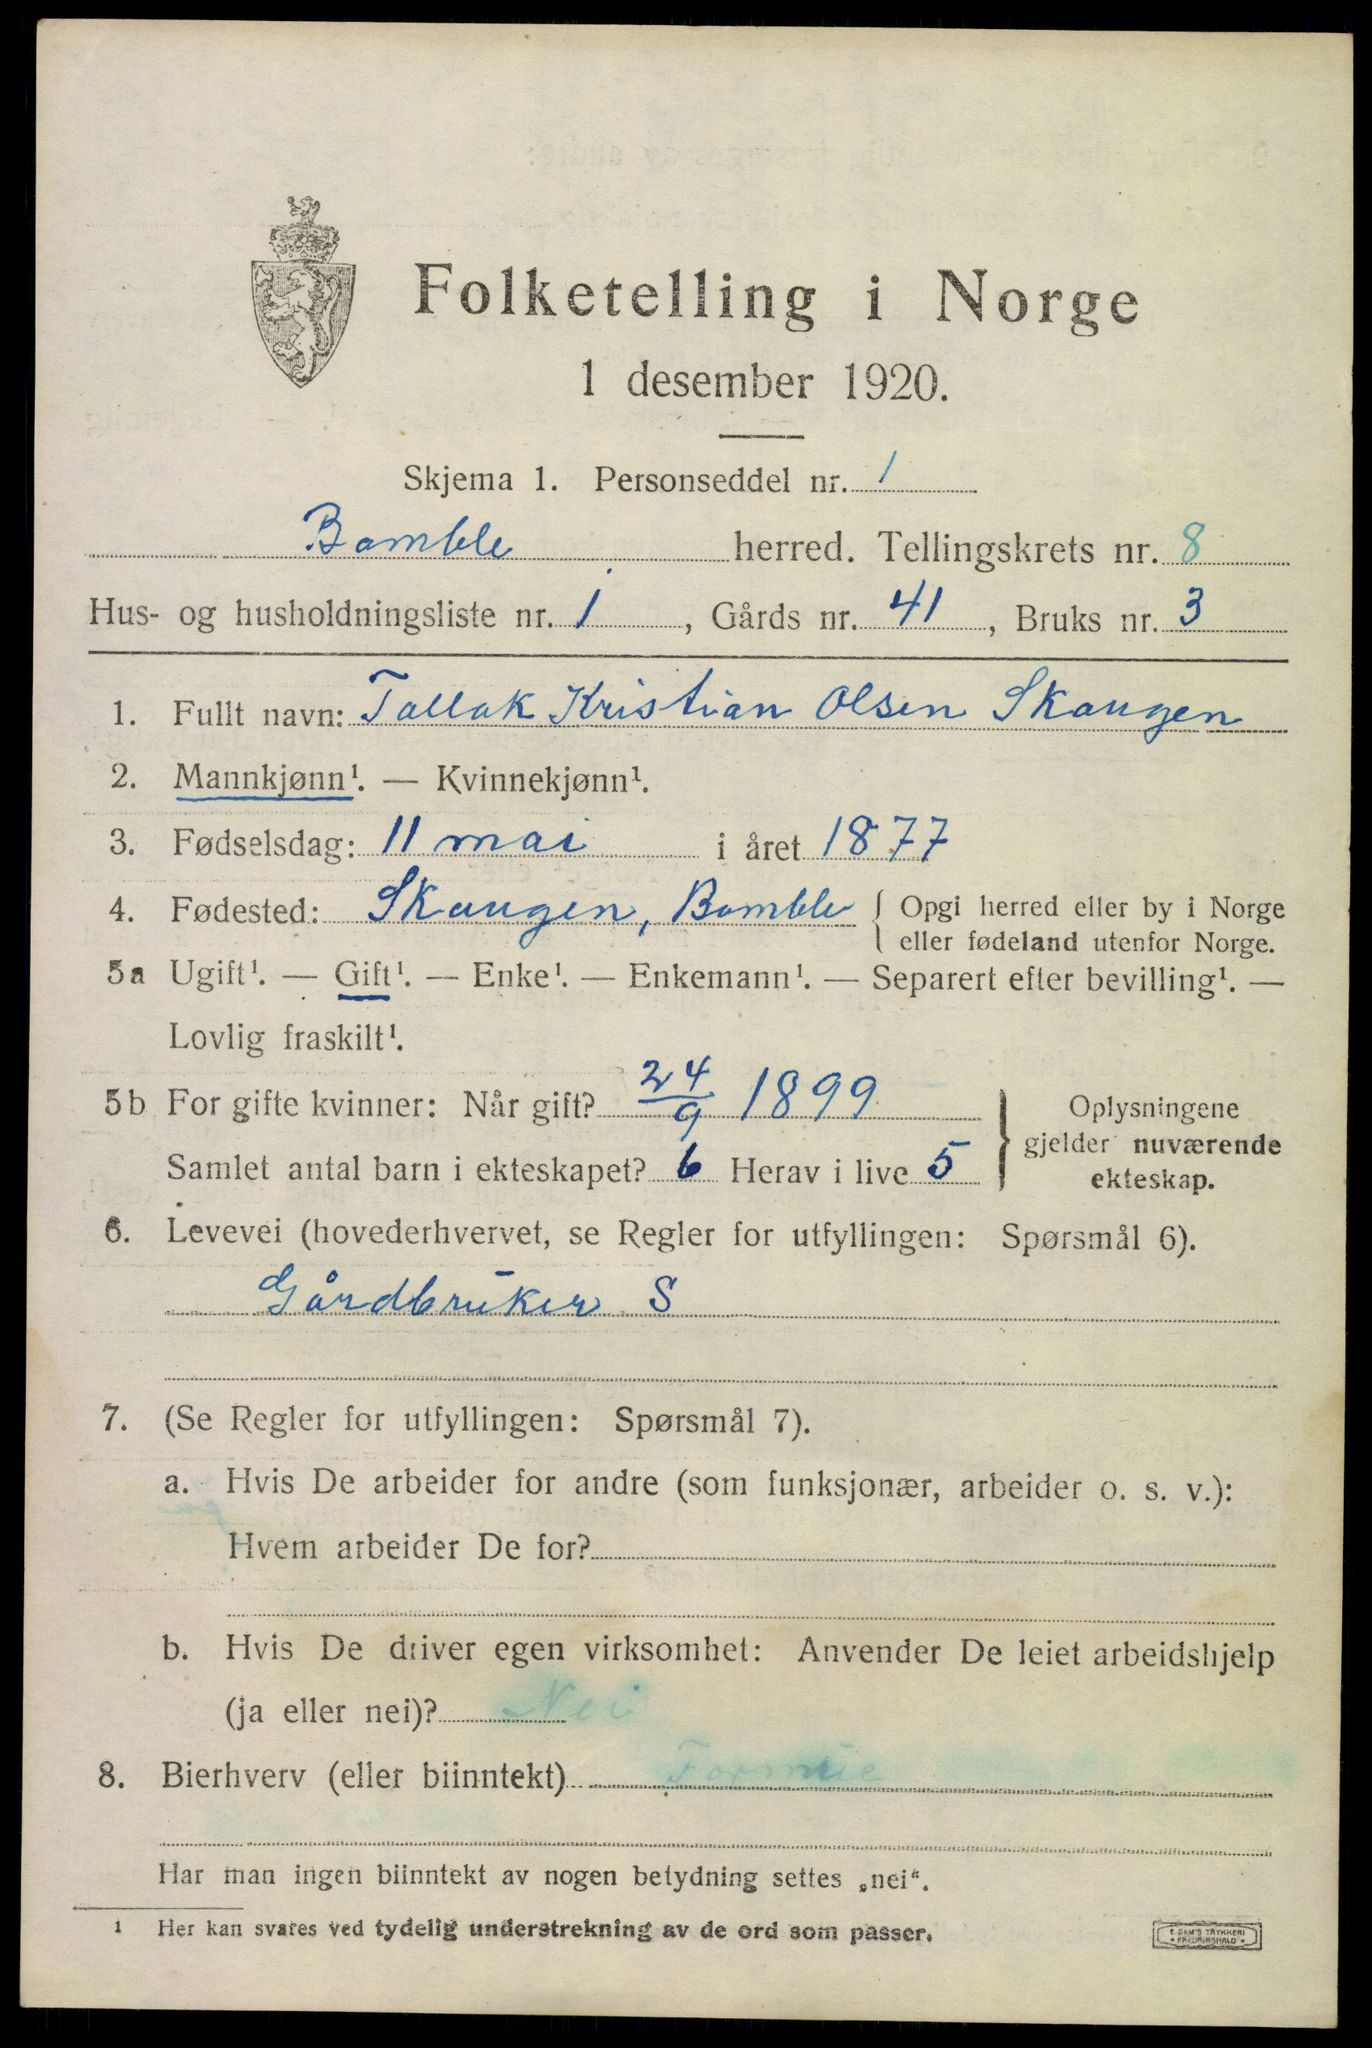 Folketelling i Norge
1 desember 1920.
Skjema 1. Personseddel nr. 1
Bamble herred. Tellingskrets nr. 8
Hus- og husholdningsliste nr. 1, Gårds nr. 41, Bruks nr. 3
1. Fullt navn: Tallak Kristian Olsen Skaugen
2. Mannkjønn¹. — Kvinnekjønn¹.
3. Fødselsdag: 11 mai i året 1877
4. Fødested: Skaugen, Bamble { Opgi herred eller by i Norge
eller fødeland utenfor Norge.
5a Ugift¹. — Gift¹. — Enke¹. — Enkemann¹. — Separert efter bevilling¹. —
Lovlig fraskilt¹.
5b For gifte kvinner: Når gift? 24/9 1899
Samlet antal barn i ekteskapet? 6 Herav i live 5
} Oplysningene
gjelder nuværende
ekteskap.
6. Levevei (hovederhvervet, se Regler for utfyllingen: Spørsmål 6).
Gårdbruker S
7. (Se Regler for utfyllingen: Spørsmål 7).
a. Hvis De arbeider for andre (som funksjonær, arbeider o. s. v.):
Hvem arbeider De for?
b. Hvis De driver egen virksomhet: Anvender De leiet arbeidshjelp
(ja eller nei)? Nei
8. Bierhverv (eller biinntekt) Formue
Har man ingen biinntekt av nogen betydning settes „nei“.
¹ Her kan svares ved tydelig understrekning av de ord som passer.
E. SEM'S TRYKKERI
FREDRIKSHALD